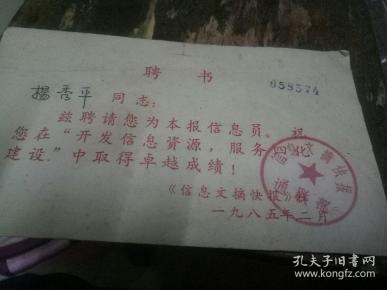 聘书
058574
楊秀平 同志：
兹聘请您为本报信息员。祝
您在“开发信息资源，服务四化
建设”中取得卓越成绩！
《信息文摘快报》
一九八五年二月
孔夫子旧书网
www.kongfz.com